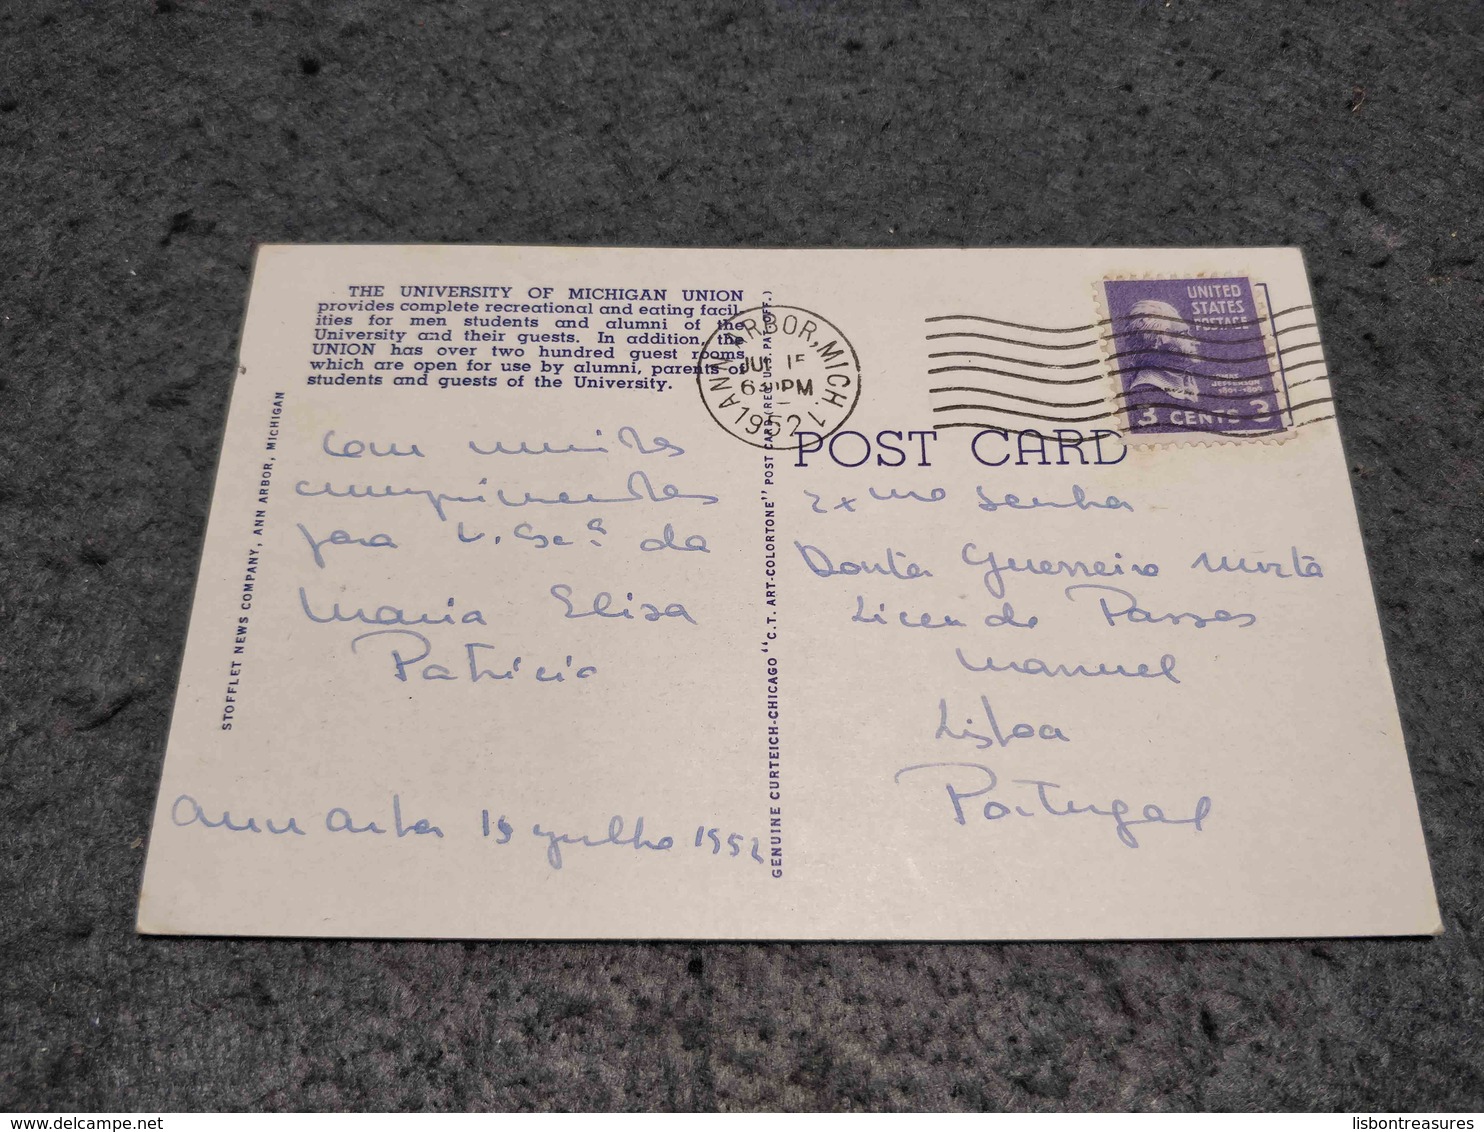 THE UNIVERSITY OF MICHIGAN UNION
provides complete recreational and eating facil-
ities for men students and alumni of the
University and their guests. In addition, the
UNION has over two hundred guest rooms
which are open for use by alumni, parents of
students and guests of the University.
STOFFLET NEWS COMPANY, ANN ARBOR, MICHIGAN
com muitos
cumprimentos
para V. Exc.ª da
Maria Elisa
Patrício
Ann Arbor 15 Julho 1952
GENUINE CURTEICH-CHICAGO "C.T. ART-COLORTONE" POST CARD (REG. U.S. PAT. OFF.)
ANN ARBOR, MICH.
PM
1952
UNITED
STATES
POSTAGE
JEFFERSON
3 CENTS 3
POST CARD
Guerreiro Murta
Liceu de Passos
Manuel
Lisboa
Portugal
lisbontreasures
delcampe.net